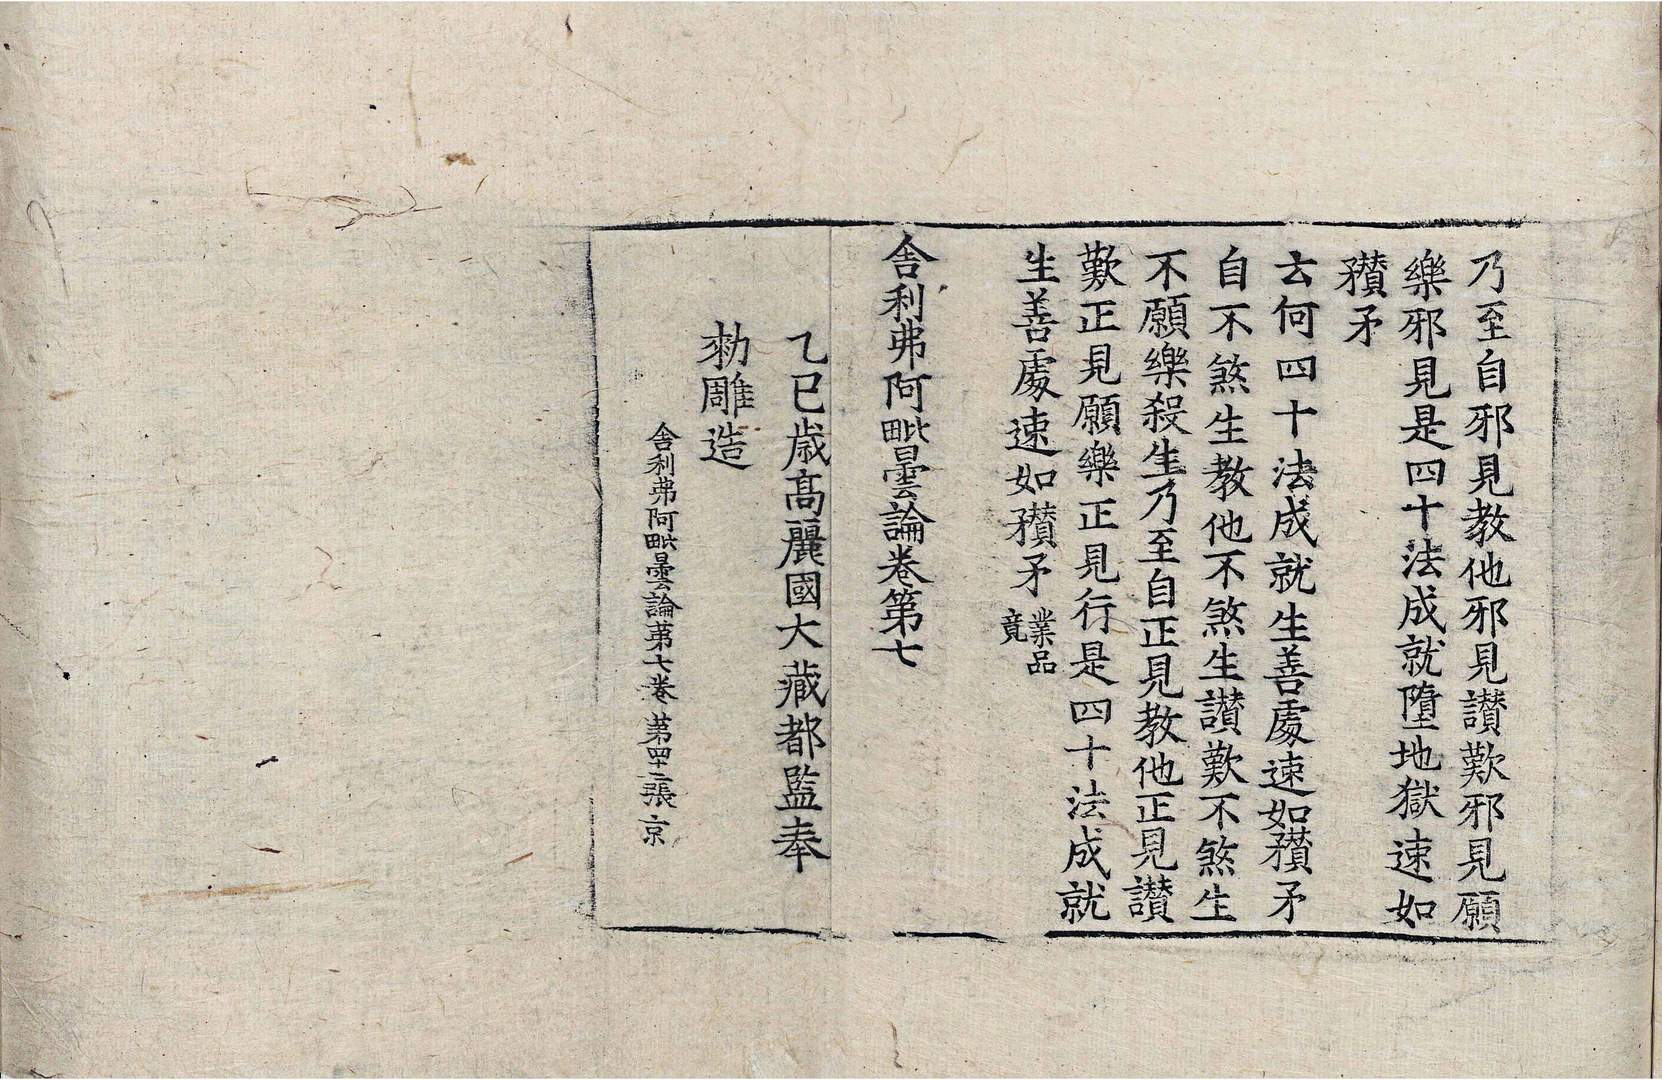 乃至自邪見教他邪見讃歎邪見願
樂邪見是四十法成就墮地獄速如
穳矛
云何四十法成就生善處速如穳矛
自不煞生教他不煞生讃歎不煞生
不願樂殺生乃至自正見教他正見讃
歎正見願樂正見行是四十法成就
生善處速如穳矛業品竟
舎利弗阿毗曇論卷第七
乙巳歳髙麗國大藏都監奉
勅雕造
舎利弗阿毗曇論第七卷 第四十二張 京